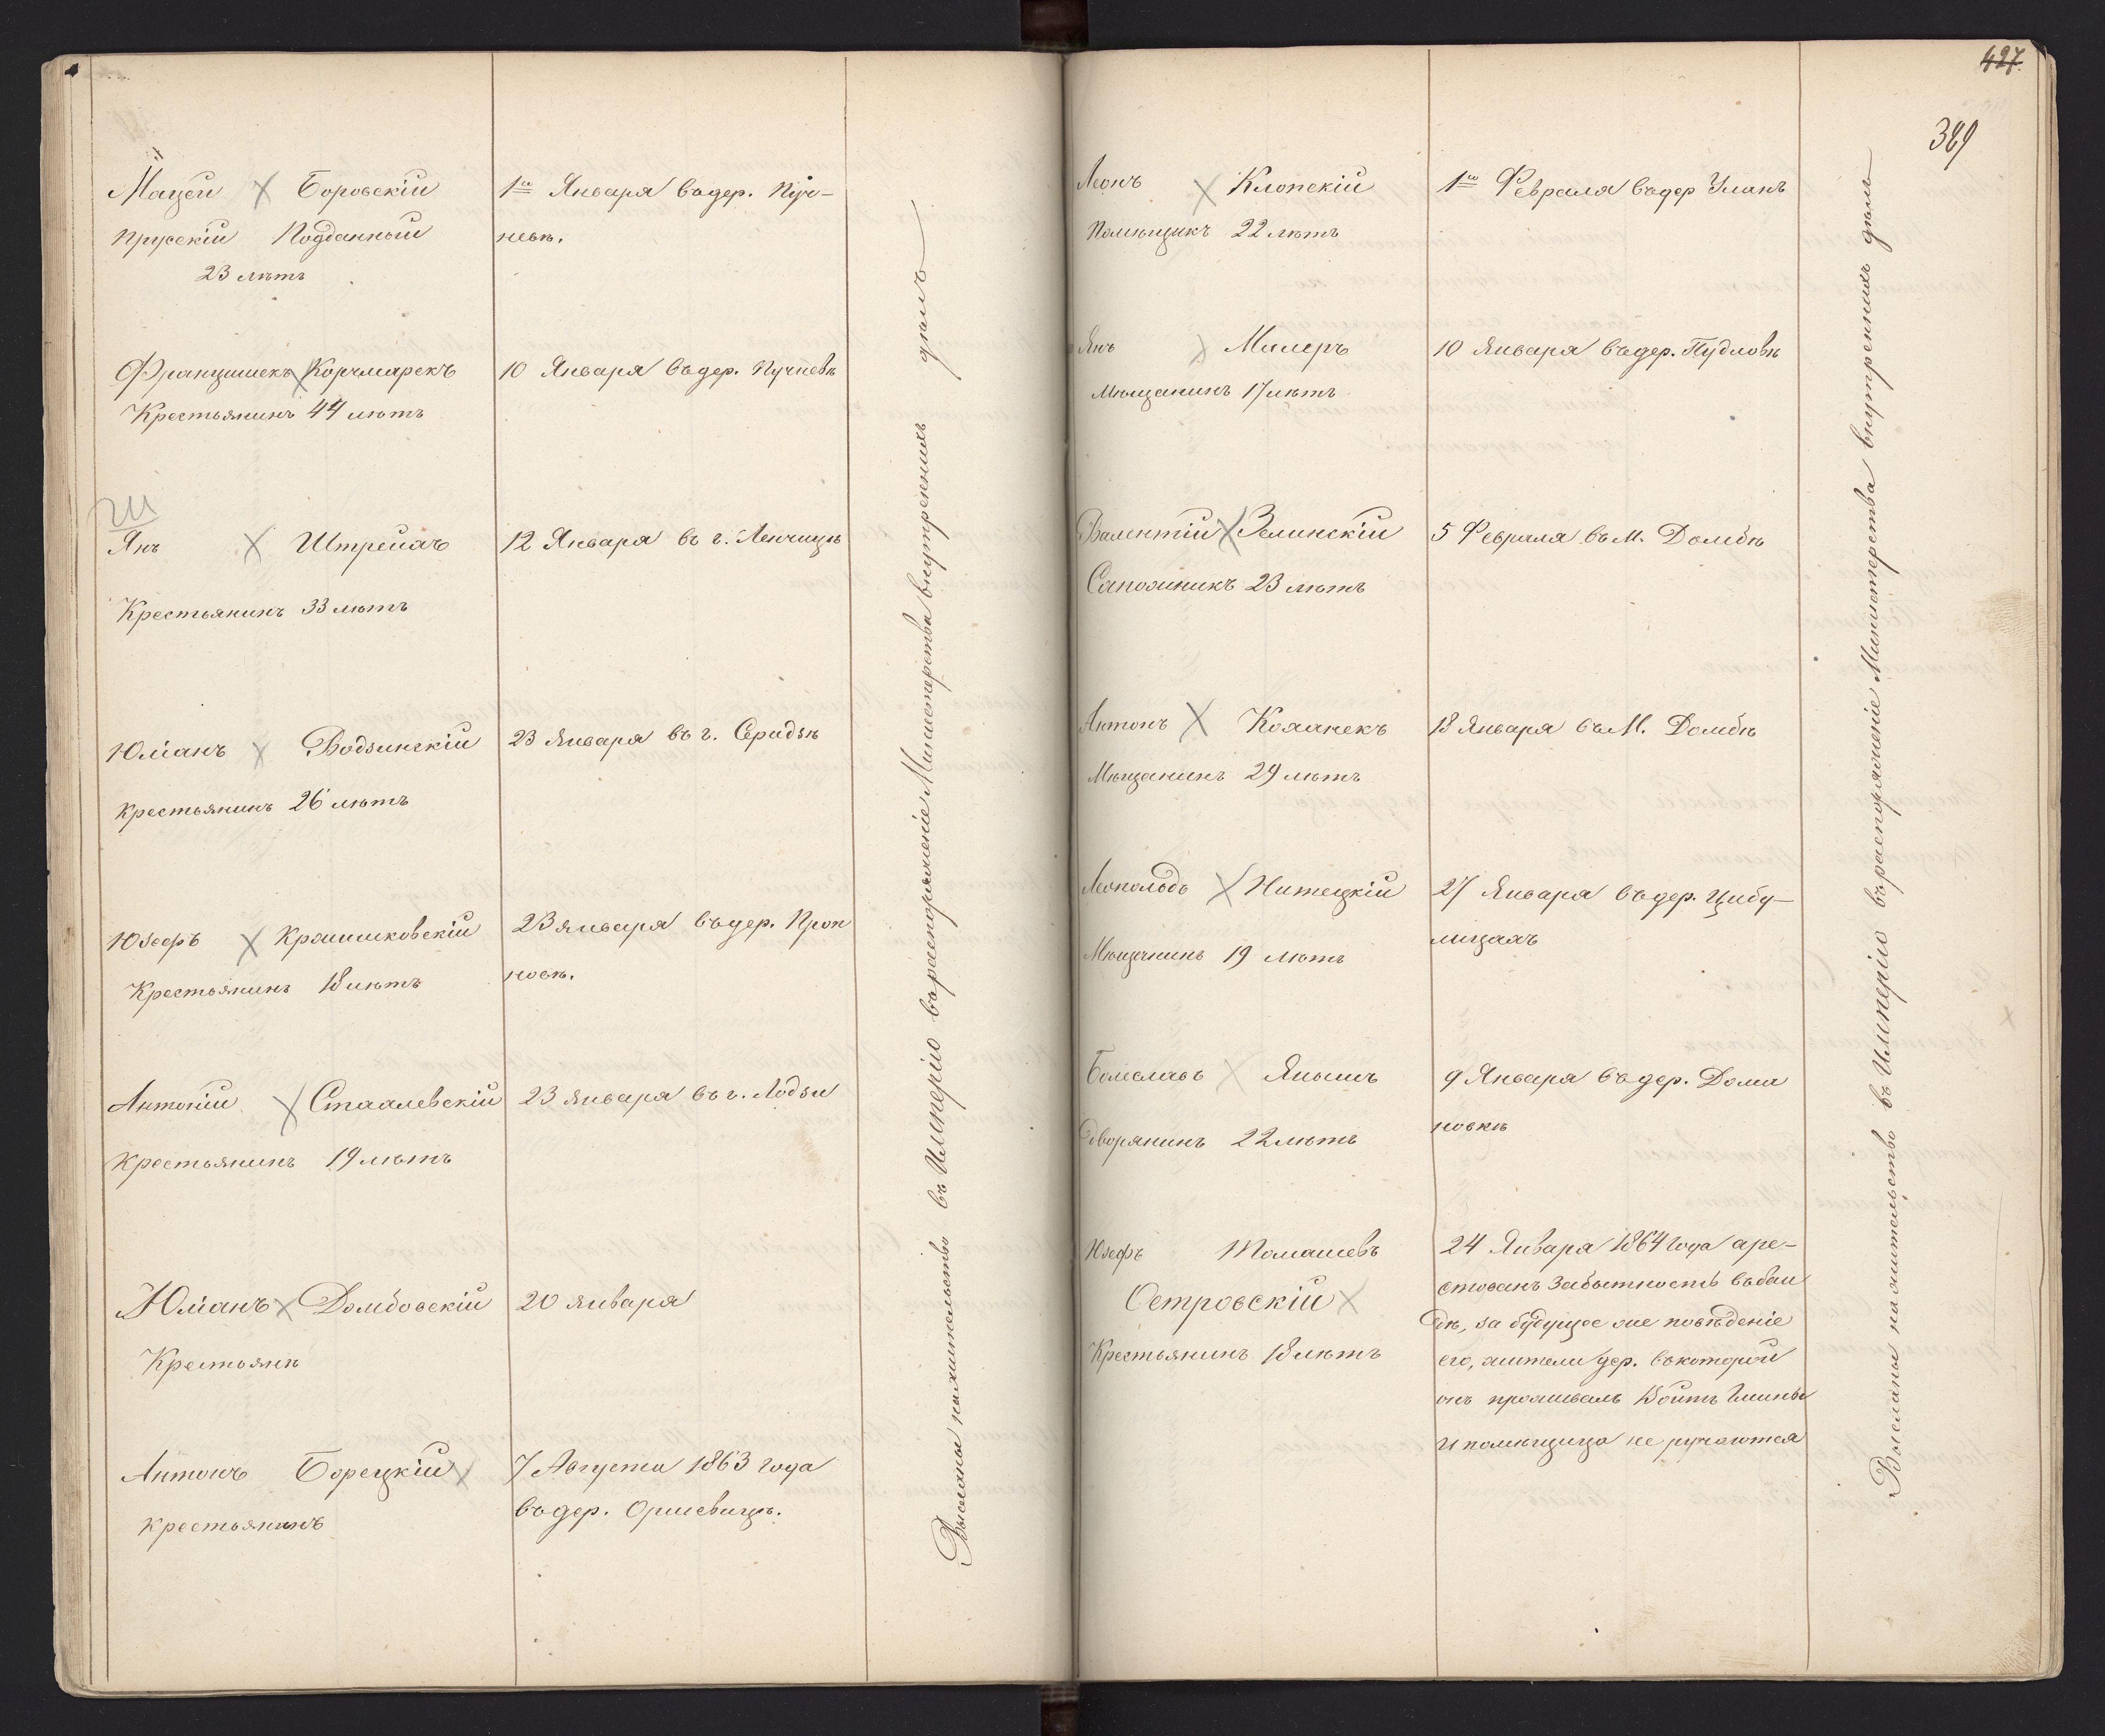 Мацей Боровскій
Прусскій Подданный
23 лѣтъ
1го Января въ дер. Пуч-
невѣ.
Францишекъ Корчмарекъ
Крестьянинъ 44 лѣтъ
10 Января въ дер. Пучневѣ
Янъ Штрейхъ
Крестьянинъ 33 лѣтъ
12 Января въ г. Ленчицѣ
Юліанъ Водзинскій
Крестьянинъ 26 лѣтъ
23 Января въ г. Серадзѣ
Юзефъ
Крестьянинъ 18 лѣтъ
23 Января въ дер.
Антоній
Крестьянинъ 19 лѣтъ
23 Января въ г. Лодзи
Юліанъ Домбовскій
20 Января
Антонъ Борецкій
Крестьянинъ
7 Августа 1863 года
въ дер.
Высланы на жительство въ Имперію въ распоряженіе Министерства внутреннихъ дѣлъ
427
389
Леонъ Клопскій
Помѣщикъ 22 лѣтъ
1го Февраля въ дер Уланъ
Янъ Милеръ
Мѣщанинъ 17 лѣтъ
10 Января въ дер. Пудловѣ
Валентій Зелинскій
Сапожникъ 23 лѣтъ
5 Февраля въ м. Домбѣ
Антонъ
Мѣщанинъ 29 лѣтъ
18 Января въ м. Домбѣ
Леопольдъ Нитецкій
Мѣщанинъ 19 лѣтъ
27 Января въ дер. Цибу-
лицахъ
Болеславъ Янышъ
Дворянинъ 22 лѣтъ
9 Января въ дер. Дома
новкѣ
Юзефъ Томашевъ
Островскій
Крестьянинъ 18 лѣтъ
24 Января 1864 года аре-
стованъ за бытность въ бан
дѣ, за будущее же поведеніе
его, жители дер. въ которой
онъ проживалъ Войтъ Гмины
и помѣщица не ручаются
Высланы на жительство въ Имперію въ распоряженіе Министерства внутреннихъ дѣлъ